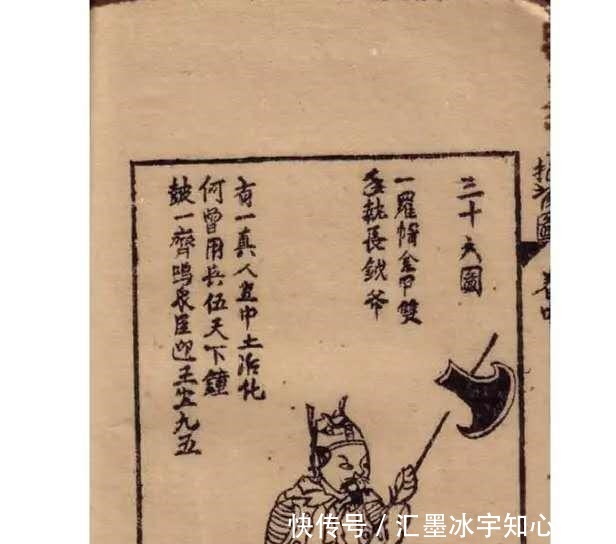 三十六圖
一羅金甲雙
手執長鉞斧
有一真人坐中土治化
何曾用兵伍天下鐘
鼓一齊鳴衆臣迎王坐九五
快传号 / 汇墨冰宇知心